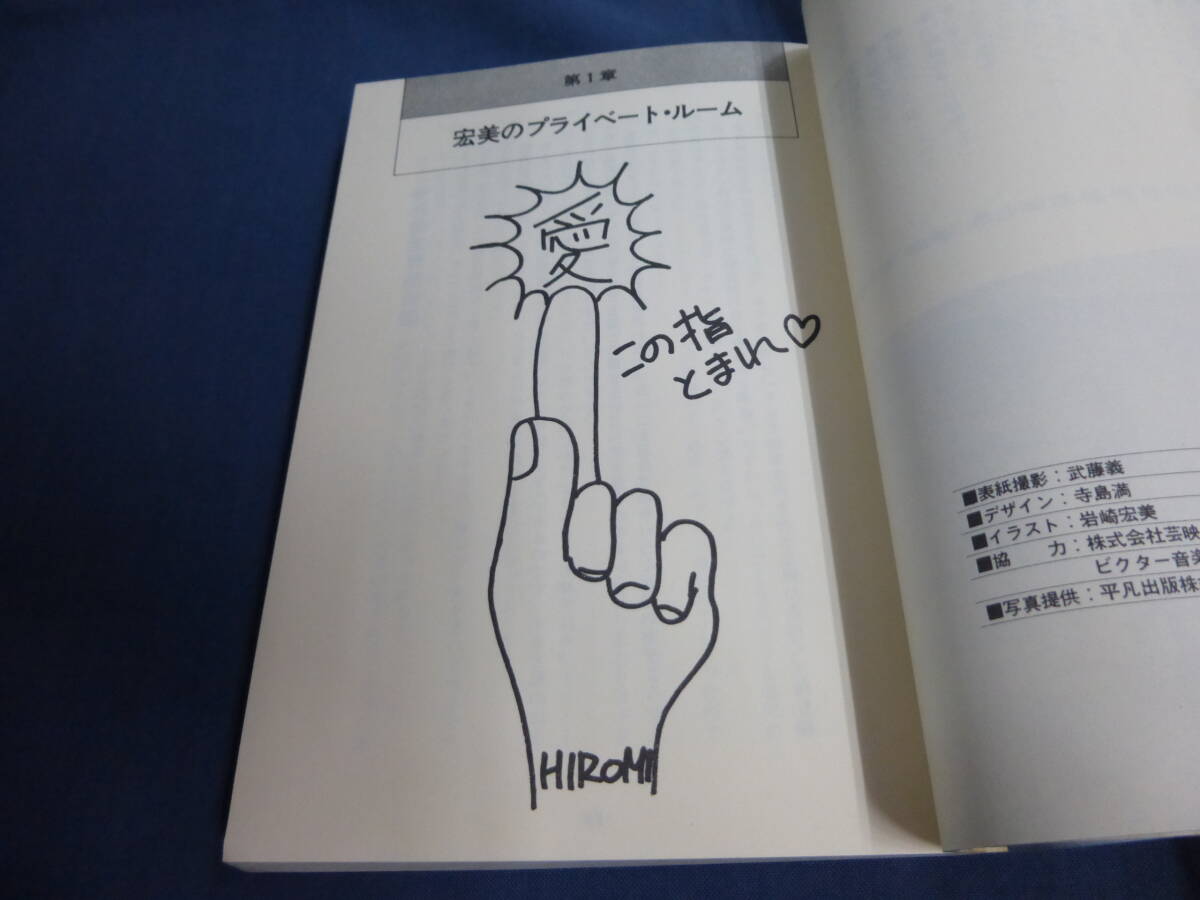 第1章
宏美のプライベート・ルーム
愛
この指
とまれ♡
HIROMI
■表紙撮影：武藤義
■デザイン：寺島満
■イラスト：岩崎宏美
■協　力：株式会社芸映
ビクター音楽
■写真提供：平凡出版株